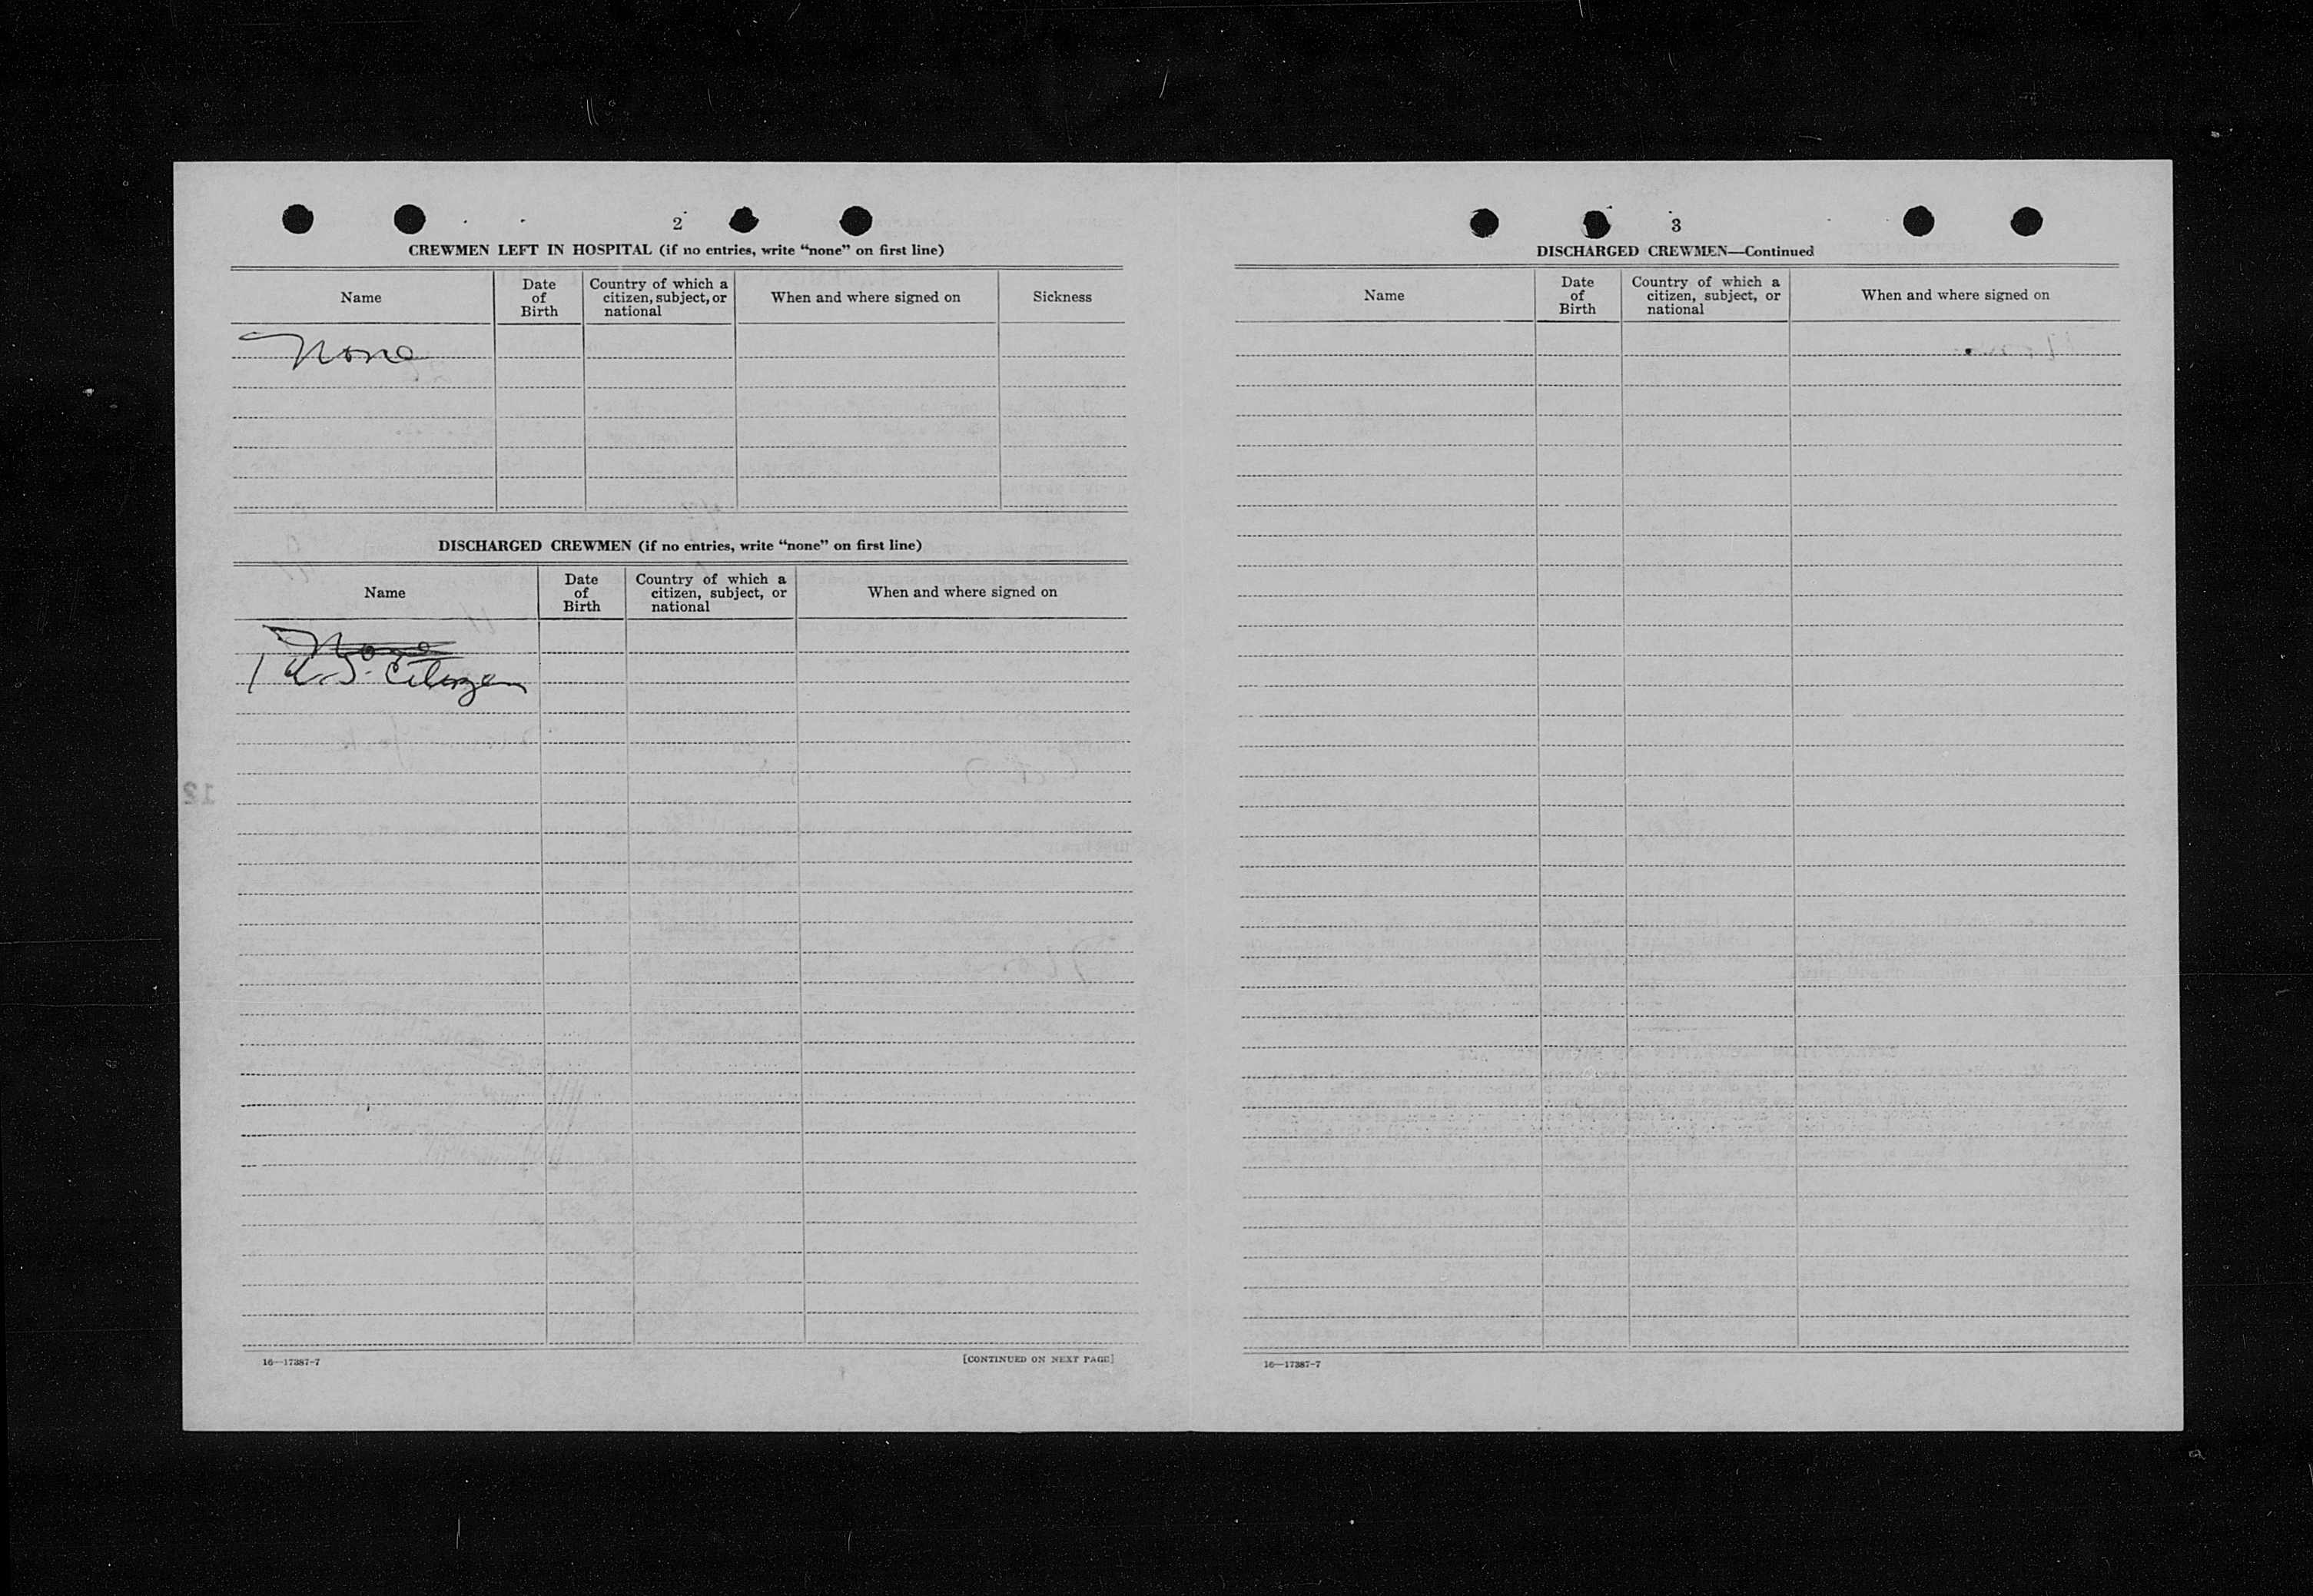 2
CREWMEN LEFT IN HOSPITAL (if no entries, write “none” on first line)
Name
Date of Birth
Country of which a citizen, subject, or national
When and where signed on
Sickness
None
DISCHARGED CREWMEN (if no entries, write “none” on first line)
Name
Date of Birth
Country of which a citizen, subject, or national
When and where signed on
None
1 U.S. Citizen
16—17387-7
[CONTINUED ON NEXT PAGE]
3
DISCHARGED CREWMEN—Continued
Name
Date of Birth
Country of which a citizen, subject, or national
When and where signed on
16—17387-7